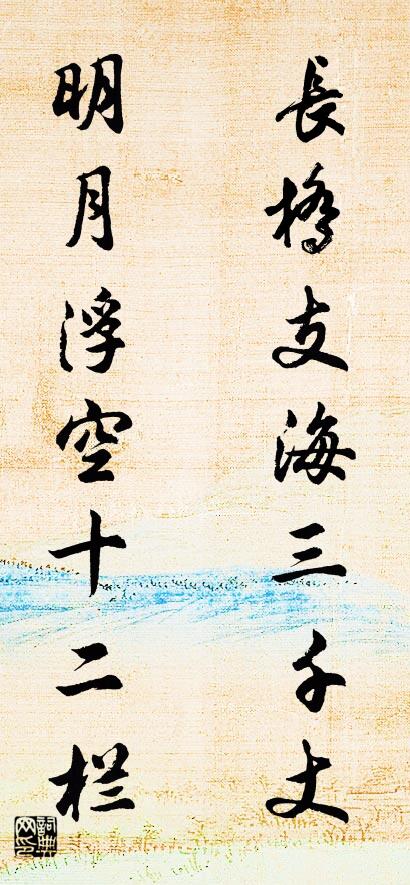 長橋支海三千丈
明月浮空十二栏
詞典网印